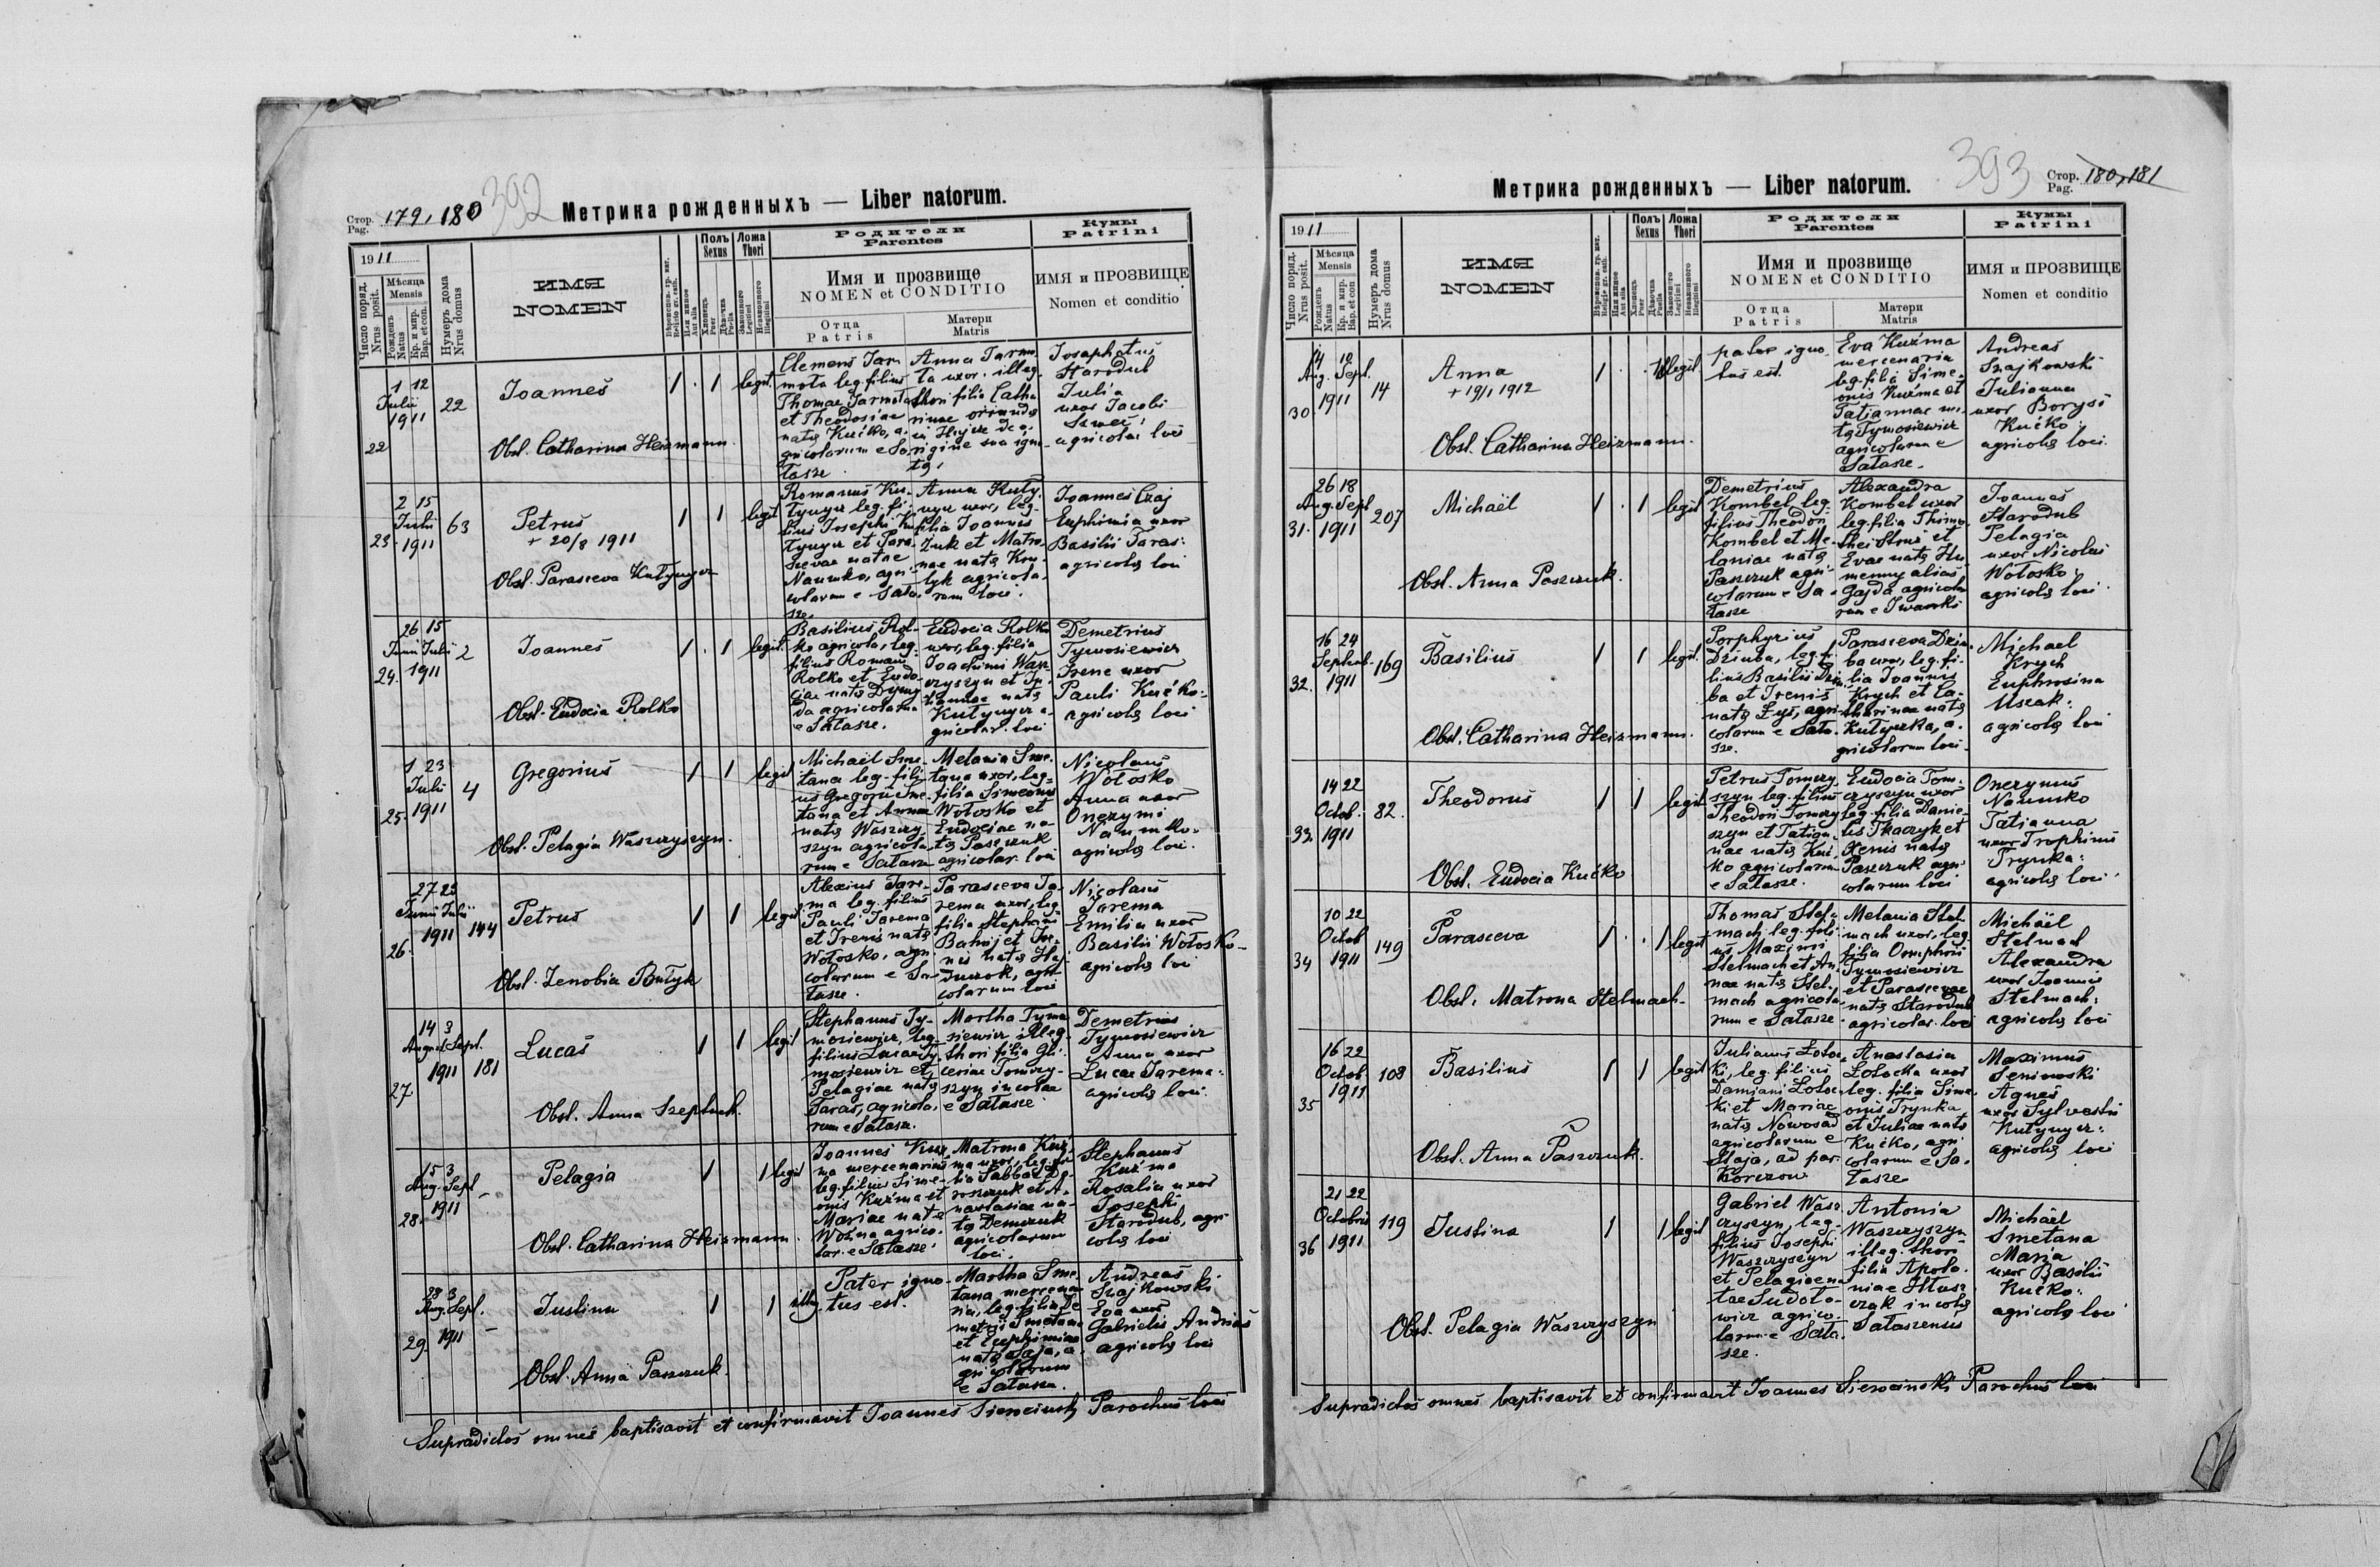 Стор. Pag. 179, 180
392
Метрика рожденныхъ — Liber natorum.
1911
Число поряд. Nrus posit.
Мѣсяца Mensis
Рожденъ Natus
Кр. и мир. Bap. et con.
Нумеръ дома Nrus domus
ИМЯ
NOMEN
Полъ Sexus
Хлопецъ Puer
Дѣвочка Puella
Ложа Thori
Законного Legitimi
Незаконного Illegitimi
Родители
Parentes
Имя и прозвище
NOMEN et CONDITIO
Отца
Patris
Матери
Matris
Кумы
Patrini
ИМЯ и ПРОЗВИЩЕ
Nomen et conditio
22
1 12
Julii
1911
22
Joannes
1 1 legit.
Obst. Catharina Heizmann.
Clemens Jar-
mota leg. filius
Thomae Jarmota
et Theodosiae
natę Kućko, a-
gricolarum e Sa-
łasze
Anna Jarmo-
ta uxor. illeg.
thori filia Catha
rinae oriunda
Josaphatus
Starodub
Julia
uxor Jacobi
Szwec
agricolae loci
23
2 15
Julii
1911
63
Petrus
+ 20/8 1911
1 1 legit
Obst. Parasceva Kułynycz
Romanus Ku-
łynycz leg. fi-
lius Josephi Ku
łynycz et Para-
scevae natae
Naumko, agri-
colarum e Sała-
sze
Anna Kuły-
nycz uxor, leg-
filia Joannis
Żuk et Matro-
nae natę Kow-
lyk agricola-
rum loci.
Joannes Czaj
Euphimia uxor
Basilii Taras:
agricolę loci
24.
26 15
Junii Julii
1911
2
Joannes
1 1 legit.
Obst. Eudocia Rolko
Basilius Rol-
ko agricola, leg.
filius Romani
Rolko et Eudo-
ciae natę Dymy
da agricolarum
e Sałasze.
Eudocia Rolko
uxor, leg. filia
Joachimi Wasz
czyszyn et Ju-
liannae natę
Kułynycz a-
gricolar. loci
Demetrius
Tymosiewicz
Irene uxor
Pauli Kućko:
agricolę loci
25.
1 23
Julii
1911
4
Gregorius
1 1 legit
Obst. Pelagia Waszczyszyn.
Michaël Sme-
tana leg. fili-
us Gregorii Sme-
tana et Annae
natę Waszczy-
szyn agricola-
rum e Sałasze
Melania Sme-
tana uxor, leg-
filia Simeonis
Wołosko et
Eudociae na-
tę Paszczuk
agricolar. loci
Nicolaus
Wołosko
Anna uxor
Onezymi
Naumko:
agricolę loci.
26.
27 23
Junii Julii
1911
144
Petrus
1 1 legit
Obst. Zenobia Bułyk
Alexius Jare-
ma leg. filius
Pauli Jarema
et Irenis natę
Wołosko, agri-
colarum e Sa-
łasze.
Parasceva Ja-
rema uxor, leg
filia Stephani
Bahnij et Ire-
nis natę Haj-
duczok, agri-
colarum loci
Nicolaus
Jarema
Emilia uxor
Basilii Wołosko-
agricolę loci
27
14 3
August Sept.
1911
181
Lucas
1 1 legit
Obst. Anna Szeptuch.
Stephanus Ty-
mosiewicz, leg-
filius Lucae Ty-
mosiewicz et
Pelagiae natę
Taras, agricola-
rum e Sałasze.
Martha Tymo
siewicz illeg-
thori filia Gli-
ceriae Tomczy-
szyn incolae
e Sałasze.
Demetrius
Tymosiewicz
Anna uxor
Lucae Jarema:
agricolę loci.
28.
15 3
Aug. Sept
1911
Pelagia
1 1 legit
Obst. Catharina Heizmann.
Joannes Kuź-
ma mercenarius
leg. filius Sime-
onis Kuźma et
Mariae natę
Woźna agrico-
lar. e Sałasze.
Matrona Kuź-
ma uxor, leg. fi-
lia Sabbae
et A-
nastasiae na-
tę Demczuk
agricolarum
loci.
Stephanus
Kuźma
Rosalia uxor
Josephi
Starodub, agri-
colę loci
29.
28 3
Aug. Sept.
1911
Justina
1 1 illeg.
Obst. Anna Paszczuk.
Pater igno-
tus est.
Martha Sme
tana mercena
ria, leg. filia De
metrii Smetana
et Euphimiae
natę Saja, a-
gricolarum
e Sałasze.
Andreas
Szajkowski
Eva uxor
Gabrielis Andrias
agricolę loci
Supradictos omnes baptisavit et confirmavit Joannes Sierocinski Parochus loci
393
Стор. Pag. 180, 181
Метрика рожденныхъ — Liber natorum.
1911
Число поряд. Nrus posit.
Мѣсяца Mensis
Рожденъ Natus
Кр. и мир. Bap. et con
Нумеръ дома Nrus domus
ИМЯ
NOMEN
Полъ Sexus
Хлопецъ Puer
Дѣвочка Puella
Ложа Thori
Законного Legitimi
Незаконного Illegitimi
Родители
Parentes
Имя и прозвище
NOMEN et CONDITIO
Отца
Patris
Матери
Matris
Кумы
Patrini
ИМЯ и ПРОЗВИЩЕ
Nomen et conditio
30
10
Aug. Sept.
1911
14
Anna
+ 19/1 1912
Obst. Catharina Heizmann.
pater igno-
tus est.
Eva Kuźma
mercenaria
leg. filia Sime-
onis Kuźma et
Tatiannae na-
tę Tymosiewicz
agricolarum e
Sałasze.
Andreas
Szajkowski
Julianna
uxor Borysi
Kućko:
agricolę loci.
31.
26 18
Aug. Sept
1911
207
Michaël
1 1 legit
Obst. Anna Paszczuk.
Demetrius
Kombel leg-
filius Theodori
Kombel et Me-
laniae natę
Paszczuk agri-
colarum e Sa-
łasze
Alexandra
Kombel uxor
leg. filia Thimo-
thei Stouś et
Evae natę Hu-
menny alias
Gajda agricola
rum e Iwanki
Joannes
Starodub
Pelagia
uxor Nicolai
Wołosko:
agricolę loci.
32.
16 24
Septemb.
1911
169
Basilius
1 1 legit.
Obst. Catharina Heizmann.
Porphyrius
Dziuba, leg. fi-
lius Basilii Dziu-
ba et Irenis
natę Łyś, agri-
colarum e Sała-
sze.
Parasceva Dziu-
ba uxor, leg. fi-
lia Joannis
Krych et Ca-
tharinae natę
Kułyczka, a-
gricolarum loci.
Michael
Krych
Euphrosina
Uszak:
agricolę loci
33.
14 22
Octob.
1911
82.
Theodorus
1 1 legit
Obst. Eudocia Kućko
Petrus Tomczy-
szyn leg. filius
Theodori Tomczy-
szyn et Tatian-
nae natę Kuć-
ko agricolarum
e Sałasze.
Eudocia Tom-
czyszyn uxor
leg. filia Danie-
lis Tkaczyk et
Xenis natę
Paszczuk agri-
colarum loci
Onezymus
Naumko
Tatianna
uxor Trophimi
Trynka:
agricolę loci.
34
10 22
Octob
1911
149
Parasceva
1 1 legit
Obst. Matrona Stelmach.
Thomas Stel-
mach leg. fili-
us Maximi
Stelmach et An-
nae natę Stel-
mach agricola-
rum e Sałasze.
Melania Stel-
mach uxor, leg
filia Onuphrii
Tymosiewicz
et Parascevae
natę Starodub
agricolar. loci
Michaël
Stelmach
Alexandra
uxor Joannis
Stelmach:
agricolę loci
35
16 22
Octob.
1911
108
Basilius
1 1 legit
Obst. Anna Paszczuk.
Julianus Łotoc-
ki, leg. filius
Damiani Łotoc-
ki et Mariae
natę Nowosad
agricolarum e
Staja, ad par.
Korczow
Anastasia
Łotocka uxor
leg. filia Sime
onis Trynka
et Juliae natę
Kućko, agri-
colarum e Sa-
łasze
Maximus
Seniowski
Agnes
uxor Sylvestri
Kułynycz:
agricolę loci
36
21 22
Octobris
1911
119
Justina
1 1 legit
Obst. Pelagia Waszczyszyn
Gabriel Wasz-
czyszyn, leg-
filius Josephi
Waszczyszyn
et Pelagiae na
tae Sudoło-
wicz agrico-
larum e Sała-
sze.
Antonia
Waszczyszyn
illeg. thori
filia Apolo-
niae Hłusz-
czak incolę
Sałaszensis
Michaël
Smetana
Maria
uxor Basilii
Kućko:
agricolę loci
Supradictos omnes baptisavit et confirmavit Joannes Sierocinski Parochus loci